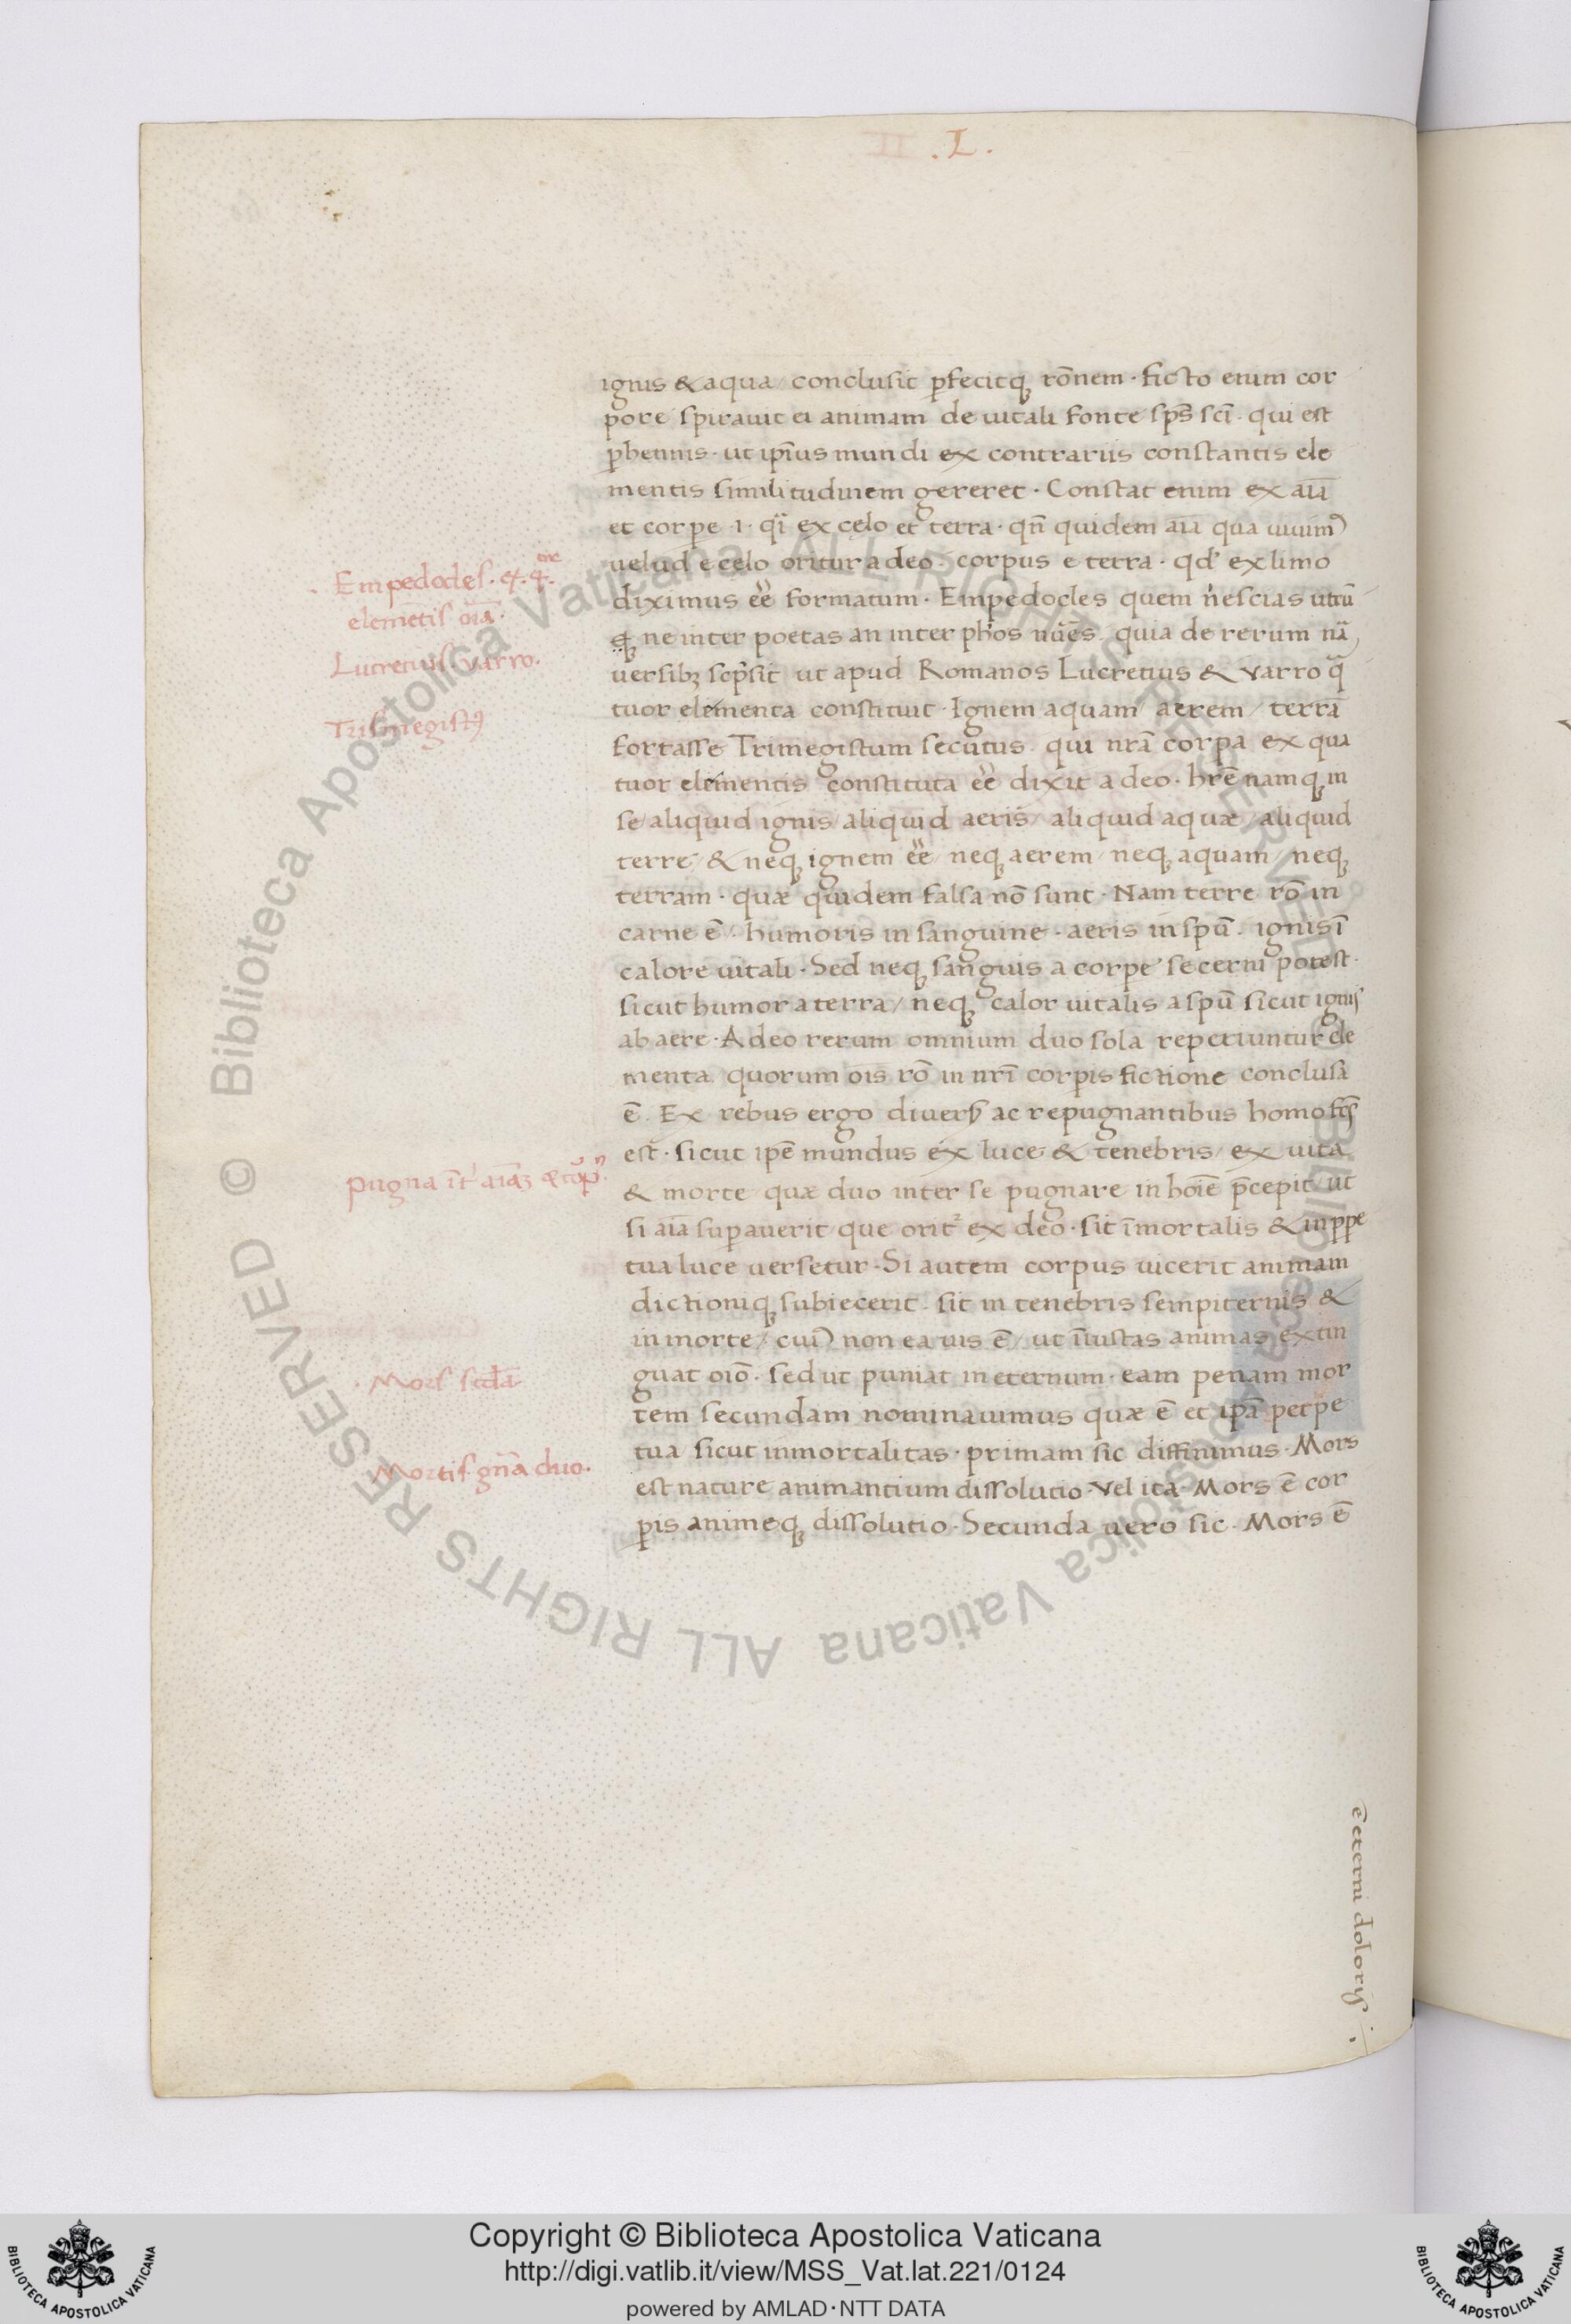 II .L.
ignis & aqua / conclusit ꝑfecitqꝫ rōnem · ficto enim cor
pore spirauit ei animam de uitali fonte sp̄s sc̄i · qui est
ꝑhennis · ut ip̄ius mundi ex contrariis constantis ele
mentis similitudinem gereret · Constat enim ex aīa
et corꝑe ·i· q̄i ex celo et terra · qn̄ quidem aīa qua uiuimꝰ
uelud e celo oritur a deo · corpus e terra · qd' ex limo
diximus eē formatum · Empedocles quem nescias utrū
qꝫ ne inter poetas an inter ph'os nūēs quia de rerum nā
uersibꝫ scpsit ut apud Romanos Lucretius & varro q̄
tuor elementa constituit · Ignem aquam / aerem / terrā
fortasse Trimegistum secutus qui nrā corpa ex qua
tuor elementis constituta eē dixit a deo · hrē namqꝫ in
se aliquid ignis / aliquid aeris / aliquid aquæ / aliquid
terre / & neqꝫ ignem eē / neqꝫ aerem / neqꝫ aquam / neqꝫ
terram · quæ quidem falsa nō sunt · Nam terre rō in
carne ē / humoris in sanguine · aeris in spū · ignis ī
calore uitali · Sed neqꝫ sanguis a corꝑe secerni potest ·
sicut humor a terra / neqꝫ calor uitalis a spū sicut ignis
ab aere · Adeo rerum omnium duo sola repetiuntur ele
menta quorum ois rō in nrī corꝑis fictione conclusa
ē · Ex rebus ergo diuers ac repugnantibus homo fc̄s
est · sicut ipē mundus ex luce & tenebris / ex uita
& morte / quæ duo inter se pugnare in hoīe p̄cepit / ut
si aīa suꝑauerit que orit᷑ ex deo · sit īmortalis & in ꝑpe
tua luce uersetur · Si autem corpus uicerit animam
dictioniqꝫ subiecerit · sit in tenebris sempiternis &
in morte / cuiꝰ non ea uis ē / ut īiustas animas extin
guat oīo · sed ut puniat in eternum · eam penam mor
tem secundam nominauimus quæ ē et ipā perpe
tua sicut inmortalitas · primam sic diffinimus · Mors
est nature animantium dissolutio · vel ita · Mors ē cor
ꝑis animeqꝫ dissolutio · Secunda uero sic · Mors ē
ē eterni doloris
Empedocles · ex · 4 ·
elemētis oīa ·
Lucretius · varro ·
Trismegistꝰ
pugna īt' aīaꝫ
Mors secd̄a
Mortis gn̄a duo ·
© Biblioteca Apostolica Vaticana ALL RIGHTS RESERVED
© Biblioteca Apostolica Vaticana ALL RIGHTS RESERVED
BIBLIOTECA APOSTOLICA VATICANA
Copyright © Biblioteca Apostolica Vaticana
http://digi.vatlib.it/view/MSS_Vat.lat.221/0124
powered by AMLAD·NTT DATA
BIBLIOTECA APOSTOLICA VATICANA